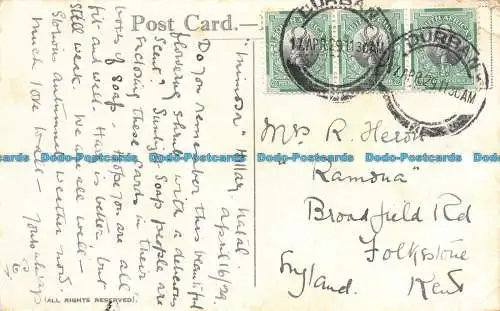 Post Card.
"Mimosa" Hillary. Natal.
April 16/29.
Do you remember this beautiful
flowering shrub with a delicious
scent? Sunlight Soap people are
enclosing these cards in their
boxes of Soap. Hope you are all
fit and well. Harry is better, but
still weak. We are all well –
Glorious autumnal weather now.
Much love to all – Yours always
(ALL RIGHTS RESERVED).
DURBAN
17 APR 29 11 30 AM
DURBAN
17 APR 29 11 30 AM
Mrs R. Heron
"Ramona"
Broadfield Rd
Folkestone
Kent
England.
Dodo-Postcards Dodo-Postcards Dodo-Postcards Dodo-Postcards